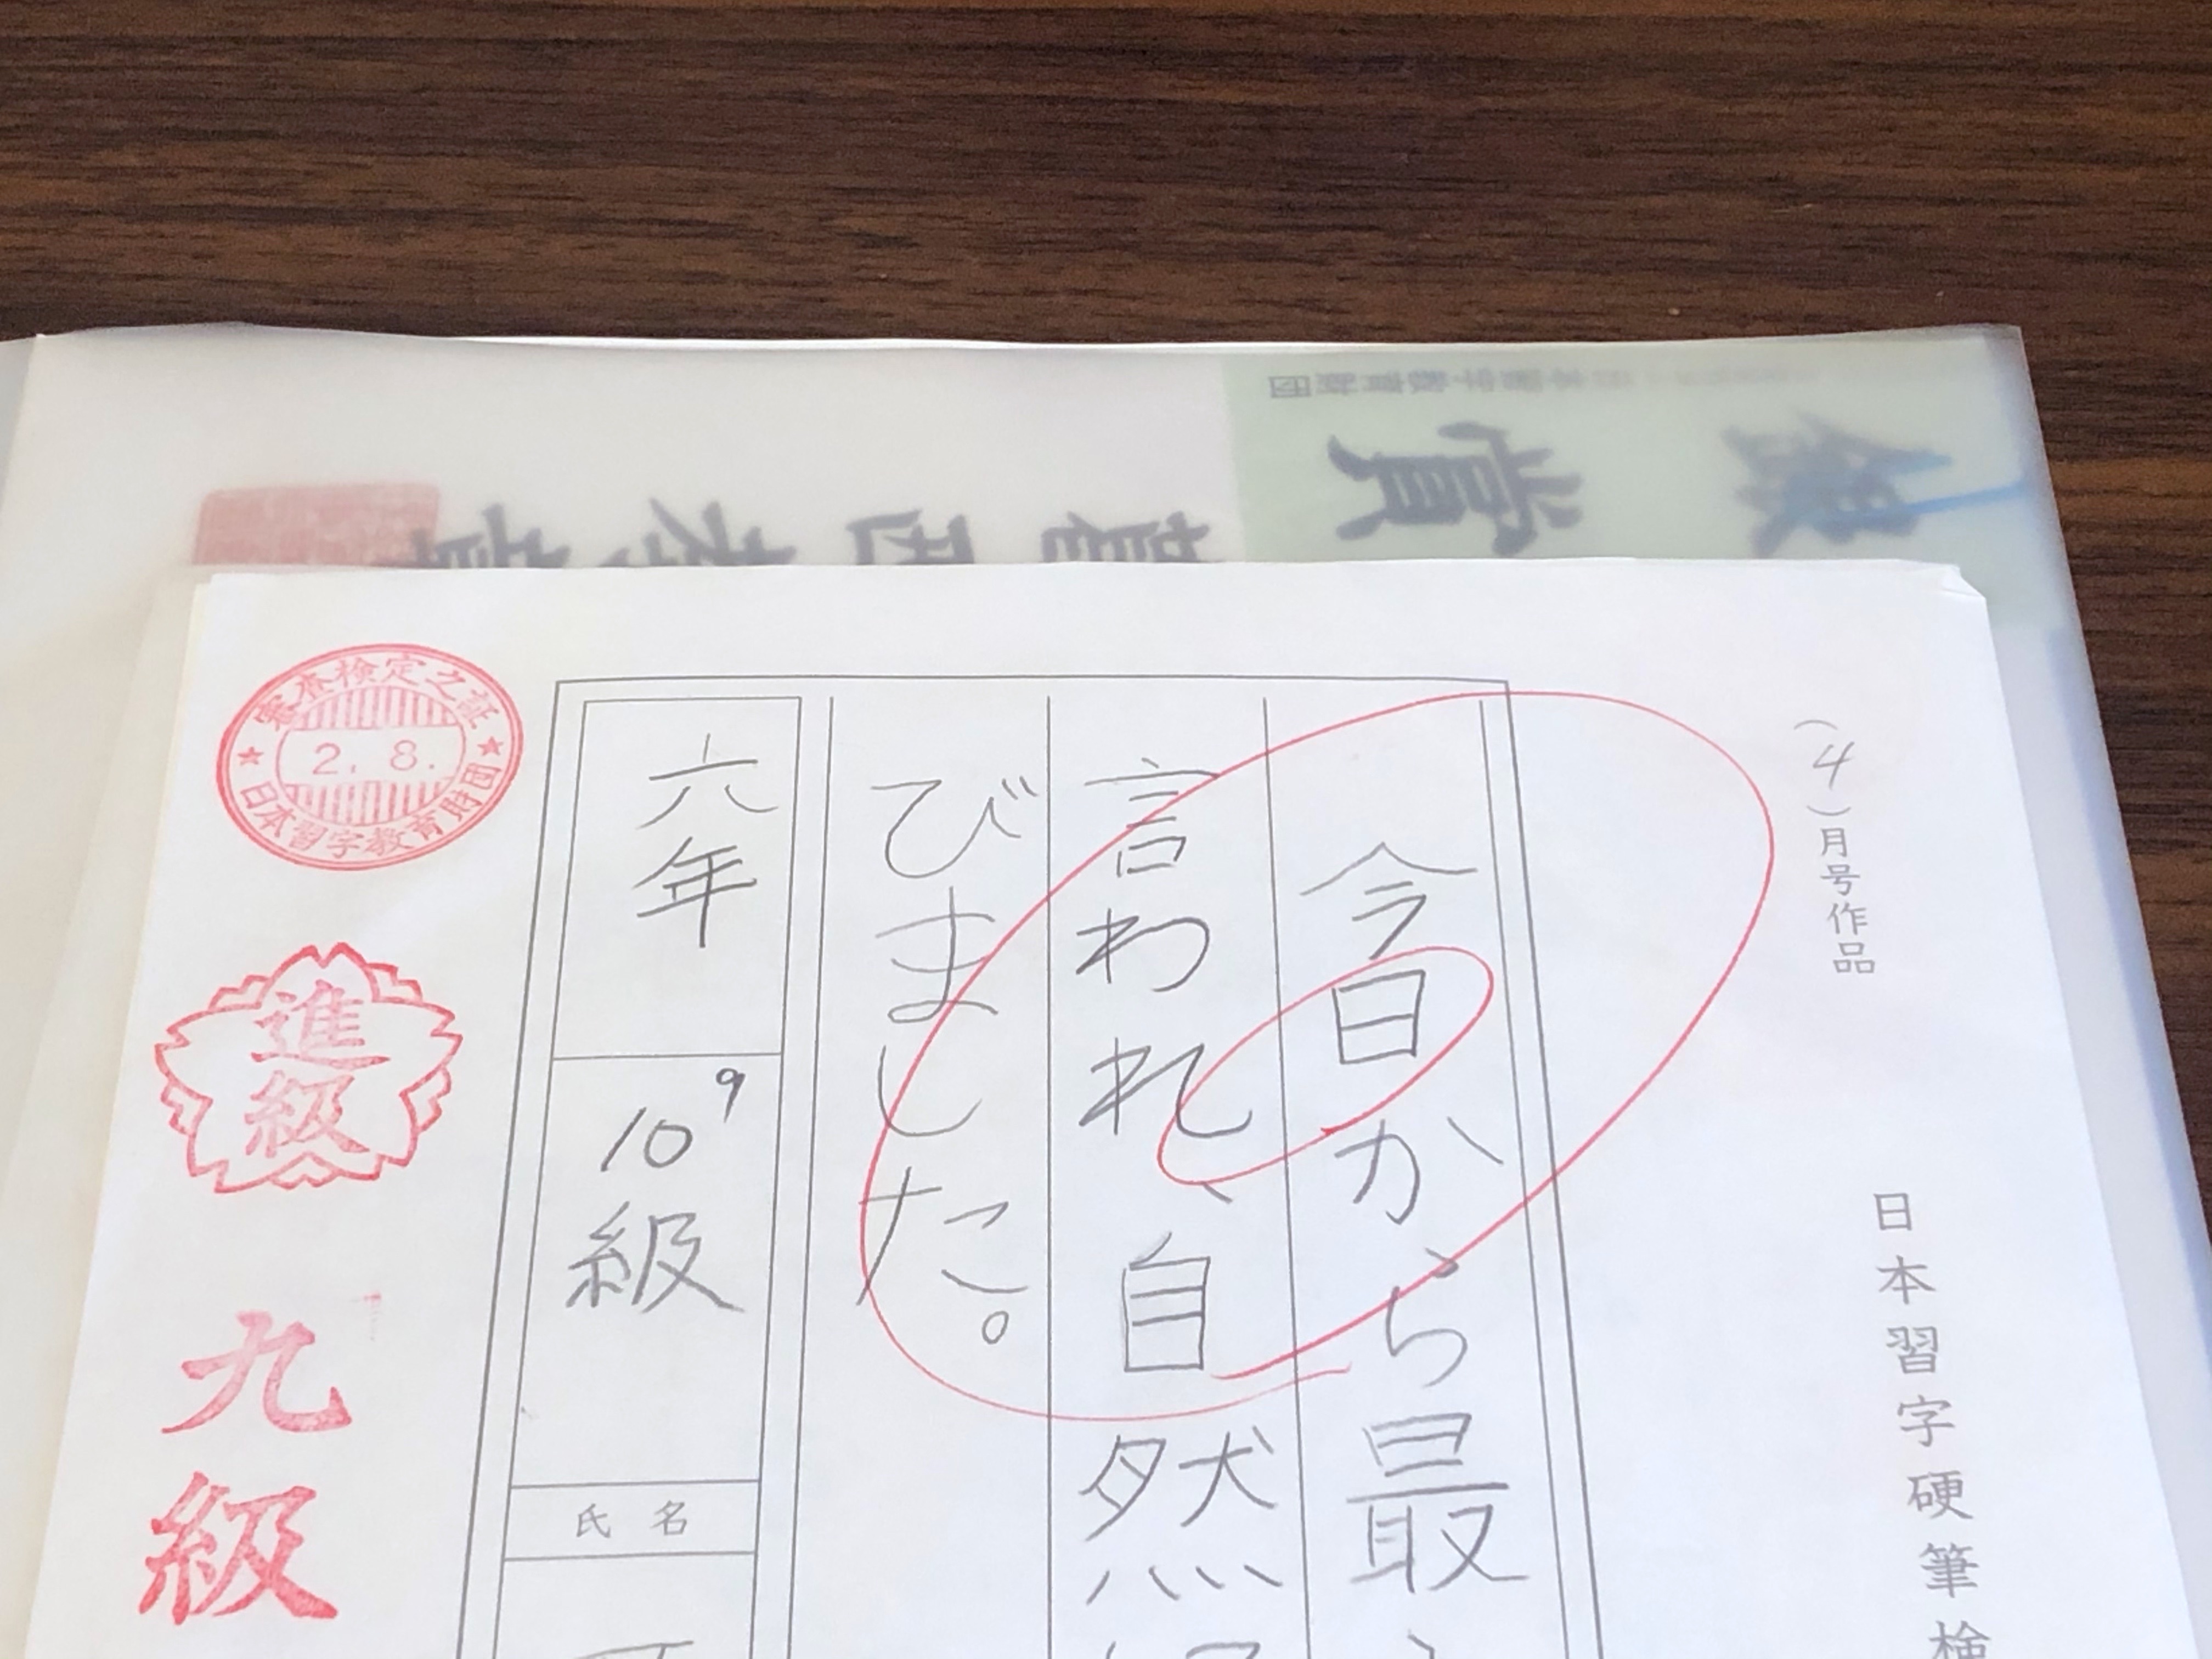 (4)月号作品
日本習字硬筆検
今日から最
言われ、自然
びました。
六年
9
10級
氏名
寬本検定之証
2. 8.
日本習字教育財団
進級
九級
賞
銀